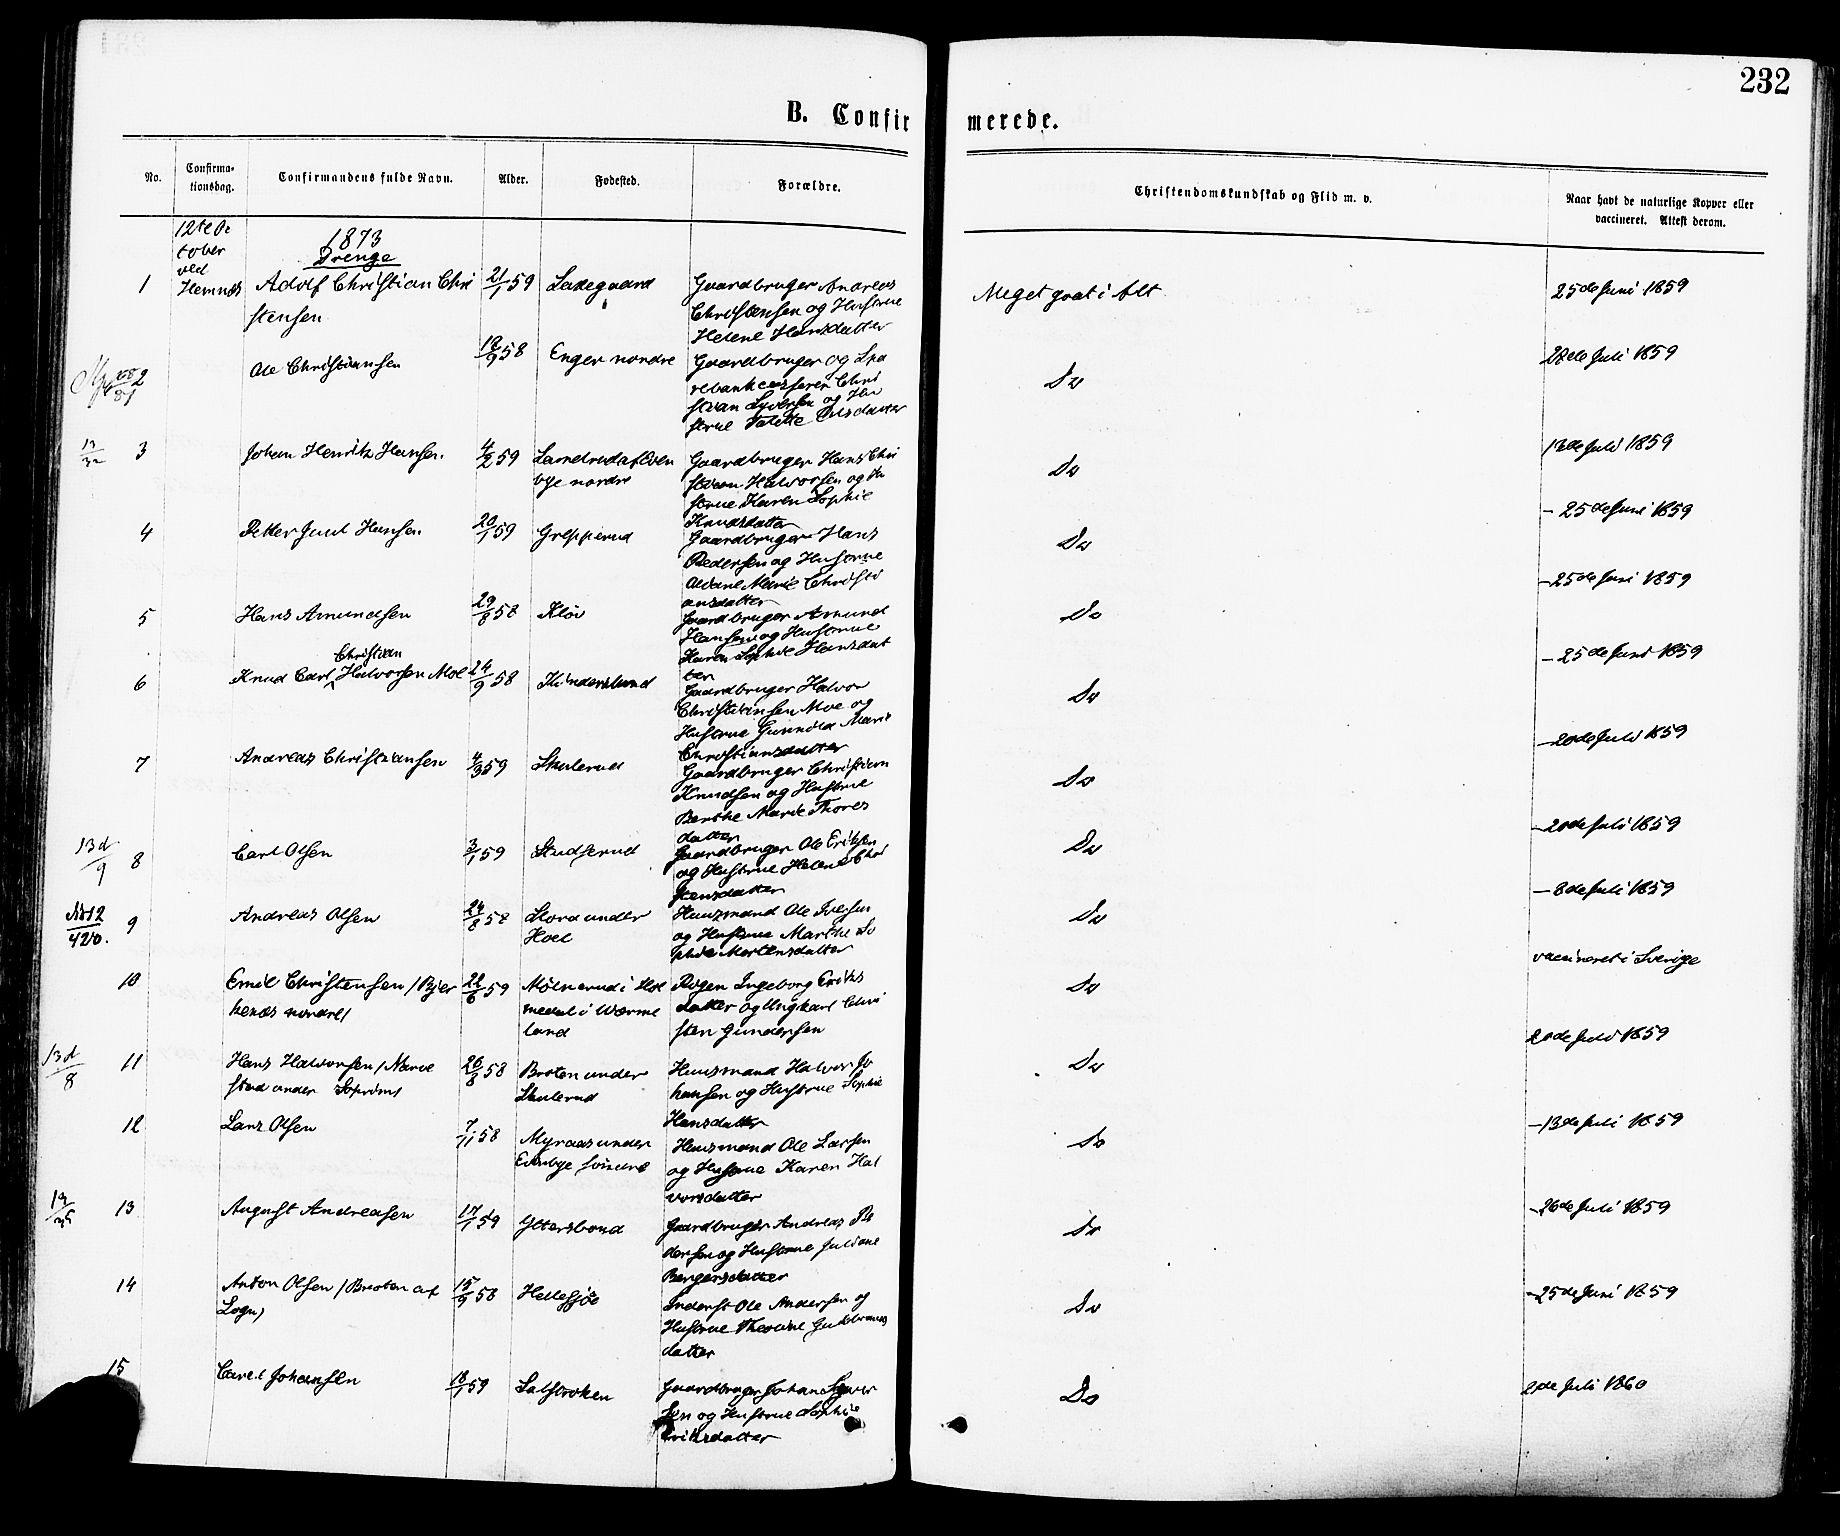 232
B. Confir merede.
No. Confirma-tionsdag. Confirmandens fulde Navn. Alder. Fødested. Forældre. Christendomskundskab og Flid m. v. Naar havt de naturlige Kopper eller vaccineret. Attest derom.
12te Oc
tober
ved
Hemnæs
1873
Drenge
1 Adolf Christian Chri
stensen
21/1 59 Ladegaard
Gaardbruger Andreas
Christensen og Hustrue
Helene Hansdatter
Meget godt i Alt
25de Juni 1859
2 Ole Christiansen
18/9 58 Enger nordre
Gaardbruger og Spa
rebankcasserer Chri
stian Syversen og Hu
strue
Do
28de Juli 1859
3 Johan Henrik Hansen.
4/2 59
bye nordre
Gaardbruger Hans Chri
stian Halvorsen og Hu
strue Karen Sophie
Knudsdatter
Do
13de Juli 1859
4 Petter Juul Hansen
20/1 59 Grepperud
Gaardbruger Hans
Pedersen og Hustrue
Marie Christi
ansdatter
Do
- 25de Juni 1859
5 Hans Amundsen
29/8 58 Kløv
Gaardbruger Amund
Hansen og Hustrue
Karen Sophie Hansdat
ter
Do
- 25de Juni 1859
Christian
6 Knud Carl Halvorsen Moe
24/9 58
Gaardbruger Halvor
Christiansen Moe og
Hustrue Gunnild Marie
Christiansdatter
Do
- 25de Juni 1859
7 Andreas Christiansen
4/3 59 Skulerud
Gaardbruger Christian
Knudsen og Hustrue
Berthe Marie Thores
datter
Do
- 20de Juli 1859
13d/9 8 Carl Olsen
3/1 59 Skudserud
Gaardbruger Ole Eriksen
og Hustrue Helene Chri
stensdatter
Do
- 20de Juli 1859
9 Andreas Olsen
24/8 58 under
Hoel
Huusmand Ole Iversen
og Hustrue Marthe So
phie Mortensdatter
Do
- 8de Juli 1859
10 Emil Christensen / Bjer
kenæs nordre/
22/6 59 i Hol
medal i Værme
land
Pigen Ingeborg Eriks
datter og Ungkarl Chri
sten Gundersen
Do
vaccineret i Sverige
13d/8 11 Hans Halvorsen /
stad under
26/8 58 Broten under
Skulerud
Huusmand Halvor Jo
hansen og Hustrue Sophie
Hansdatter
Do
20de Juli 1859
12 Lars Olsen
7/11 58 Myraas under
Evenbye søndre
Huusmand Ole Larsen
og Hustrue Karen Hal
vorsdatter
Do
- 13de Juli 1859
13 August Andreasen
17/1 59 Ytterstrand
Gaardbruger Andreas Pe
dersen og Hustrue Juliane
Bergersdatter
Do
- 26de Juli 1859
14 Anton Olsen / Broten af
15/9 58 Hellesjøe
Inderst Ole Andersen og
Hustrue Gulbrands
datter
Do
- 25de Juni 1859
15 Carel Johansen
18/1 59
Gaardbruger Johan Syver
sen og Hustrue Sophie
Eriksdatter
Do
2de Juli 1860